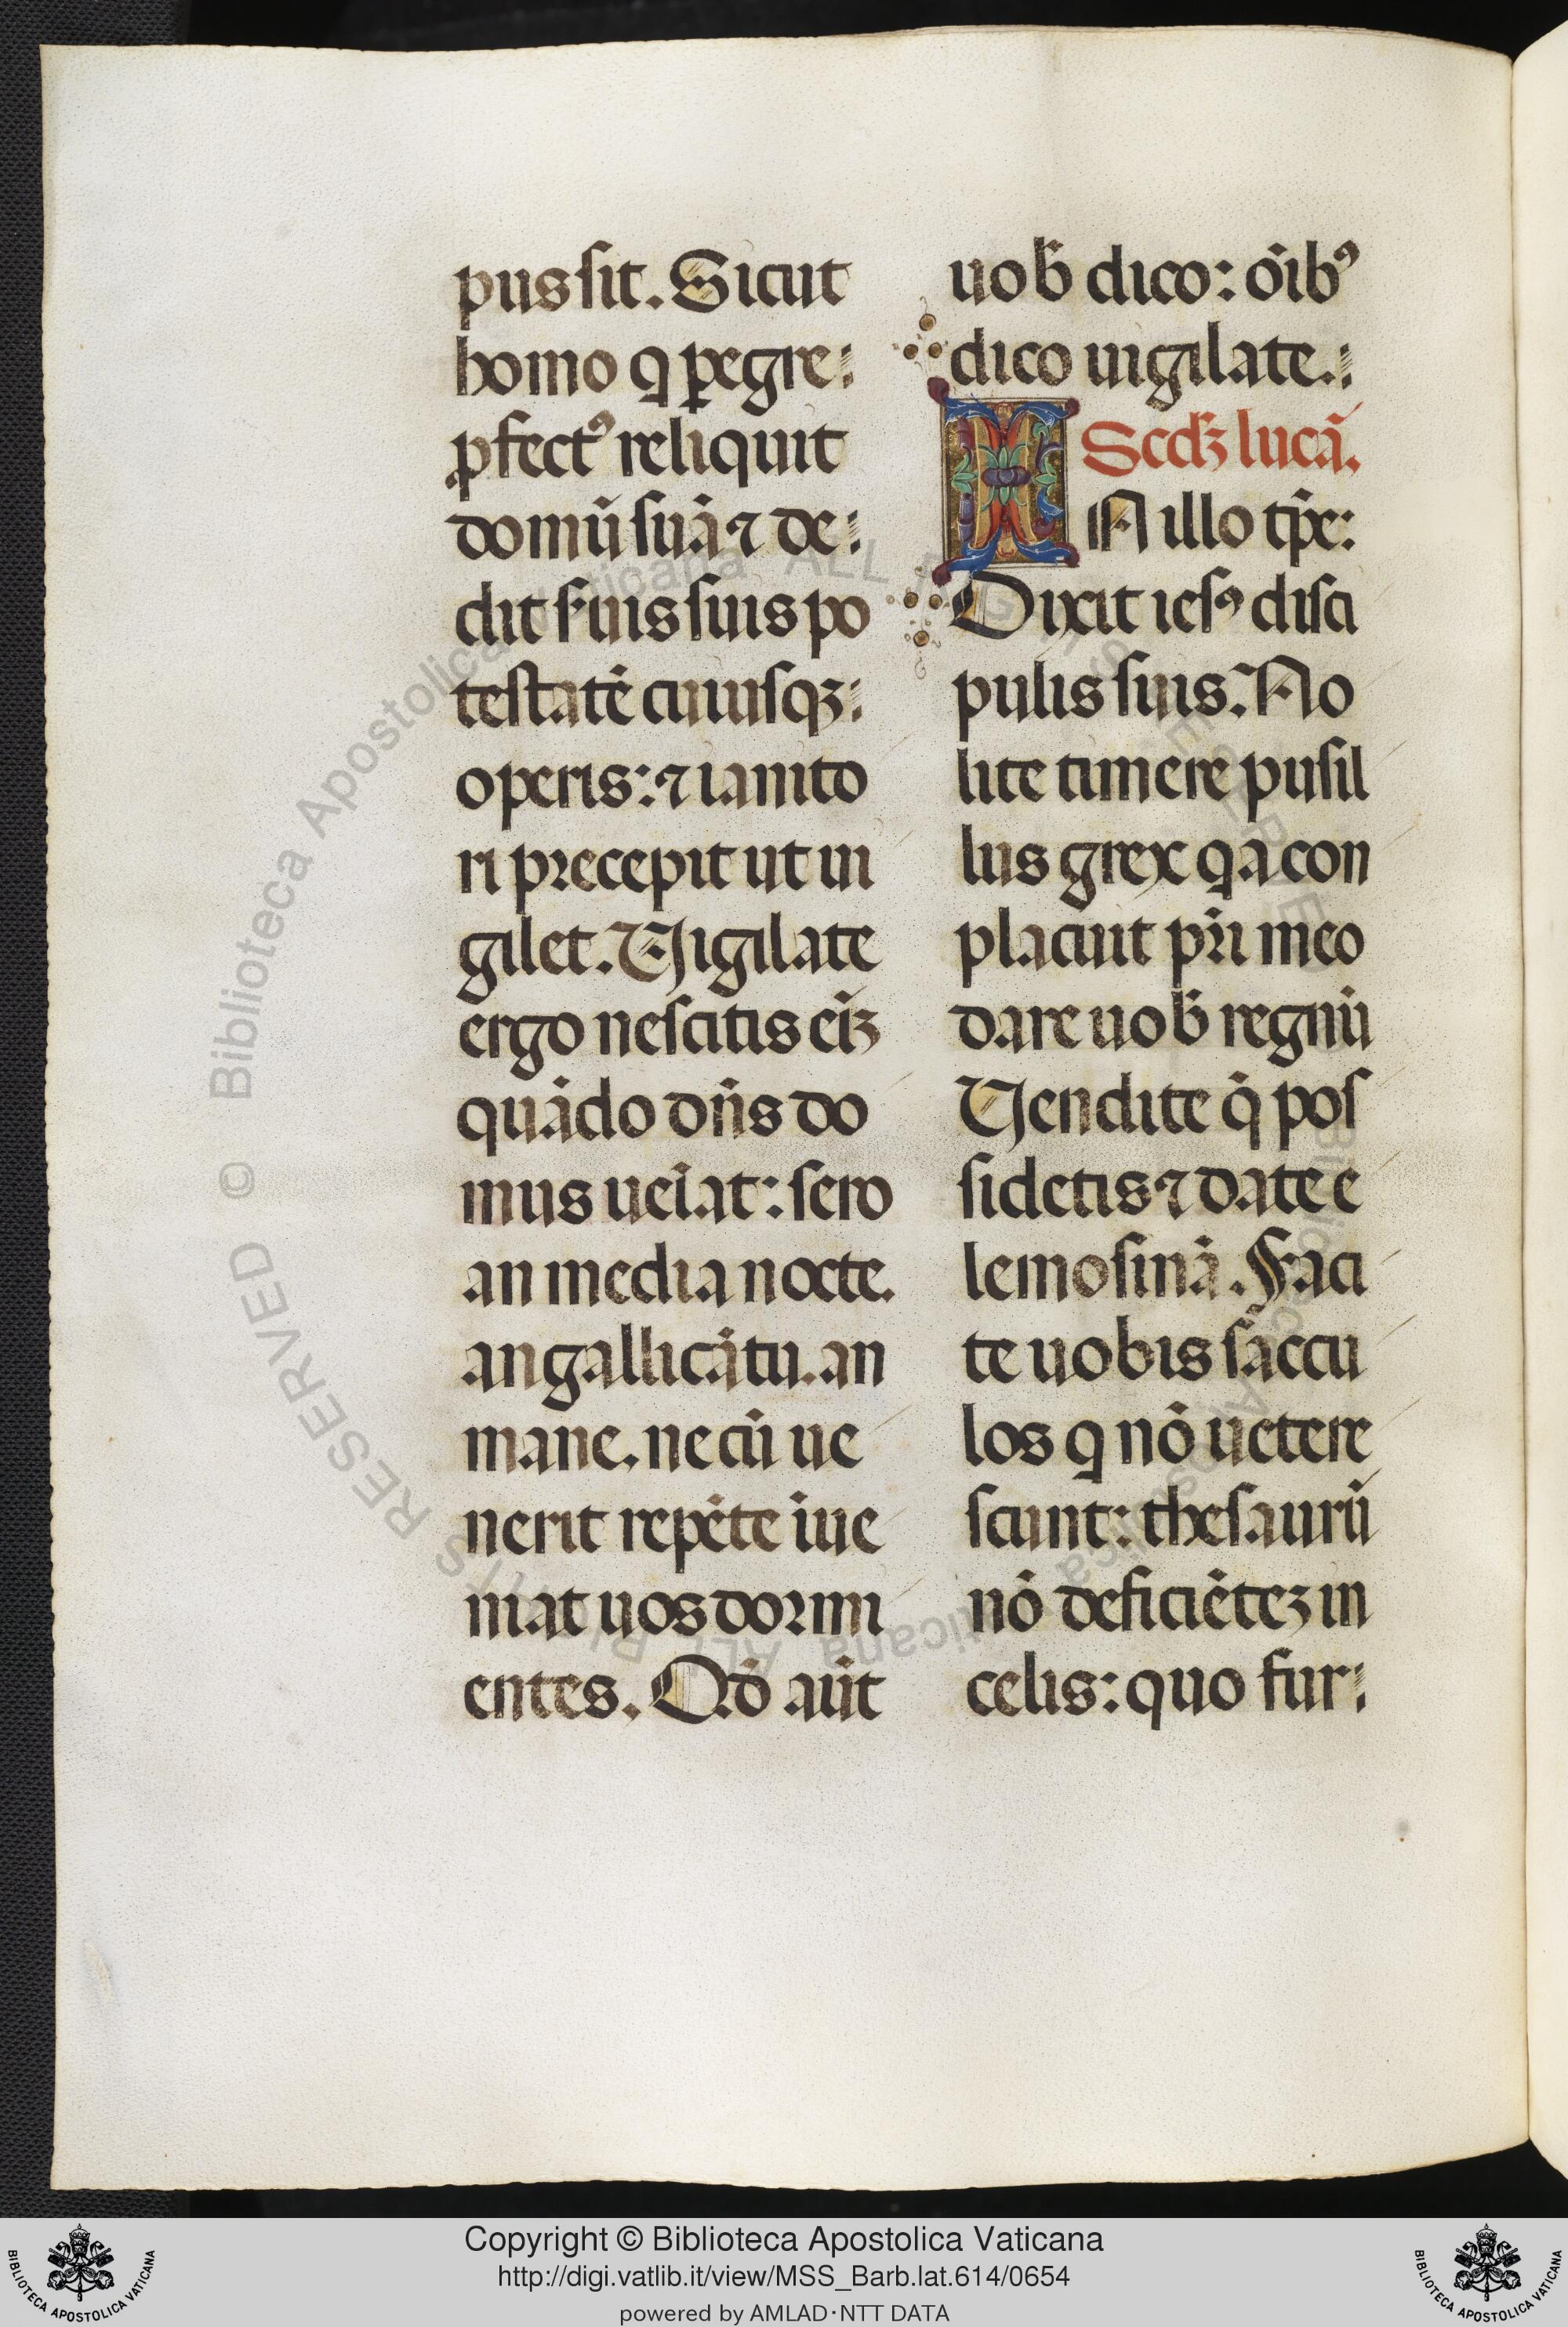 pus sit. Sicut
homo q̲ ꝑegre
ꝓfectꝰ reliquit
domū suā ⁊ de
dit s̄uis suis po
testatē cuiusqꝫ
operis: ⁊ ianito
ri precepit ut ui
gilet. Vigilate
ergo nescitis eīꝫ
quādo dn̄s do
mus ueīat: sero
an media nocte.
an gallicātu. an
mane. ne cū ue
nerit repēte īue
niat uos dormi
entes. Qd̄ aūt
uob̄ dico: oībꝰ
dico uigilate.
Scd̄ꝫ lucā.
IN illo tp̄e:
Dixit iesꝰ disci
pulis suis. No
lite timere pusil
lus grex q̲a con
placuit pr̄i meo
dare uob̄ regnū
Vendite q̄ pos
sidetis ⁊ date e
lemosinā. Faci
te uobis saccu
los q̲ nō uetere
scunt: thesaurū
nō deficiētez in
celis: quo fur
© Biblioteca Apostolica Vaticana ALL RIGHTS RESERVED
Copyright © Biblioteca Apostolica Vaticana
http://digi.vatlib.it/view/MSS_Barb.lat.614/0654
powered by AMLAD·NTT DATA
BIBLIOTECA APOSTOLICA VATICANA
BIBLIOTECA APOSTOLICA VATICANA